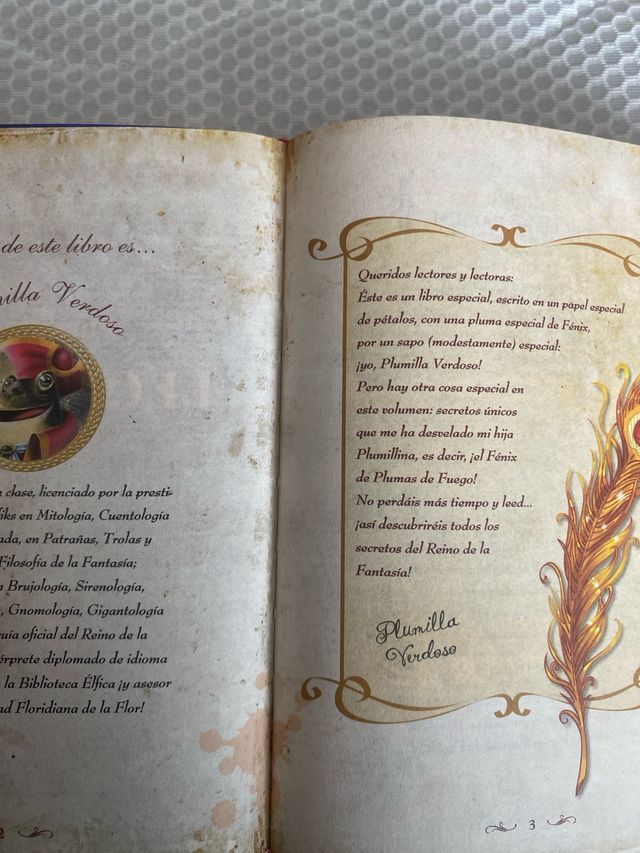 de este libro es...
Verdoso
clase, licenciado por la presti-
en Mitología, Cuentología
en Patrañas, Trolas y
Filosofía de la Fantasía;
Brujología, Sirenología,
Gnomología, Gigantología
oficial del Reino de la
diplomado de idioma
la Biblioteca Élfica ¡y asesor
Floridiana de la Flor!
2
Queridos lectores y lectoras:
Éste es un libro especial, escrito en un papel especial
de pétalos, con una pluma especial de Fénix,
por un sapo (modestamente) especial:
¡yo, Plumilla Verdoso!
Pero hay otra cosa especial en
este volumen: secretos únicos
que me ha desvelado mi hija
Plumillina, es decir, ¡el Fénix
de Plumas de Fuego!
No perdáis más tiempo y leed...
¡así descubriréis todos los
secretos del Reino de la
Fantasía!
Plumilla
Verdoso
3